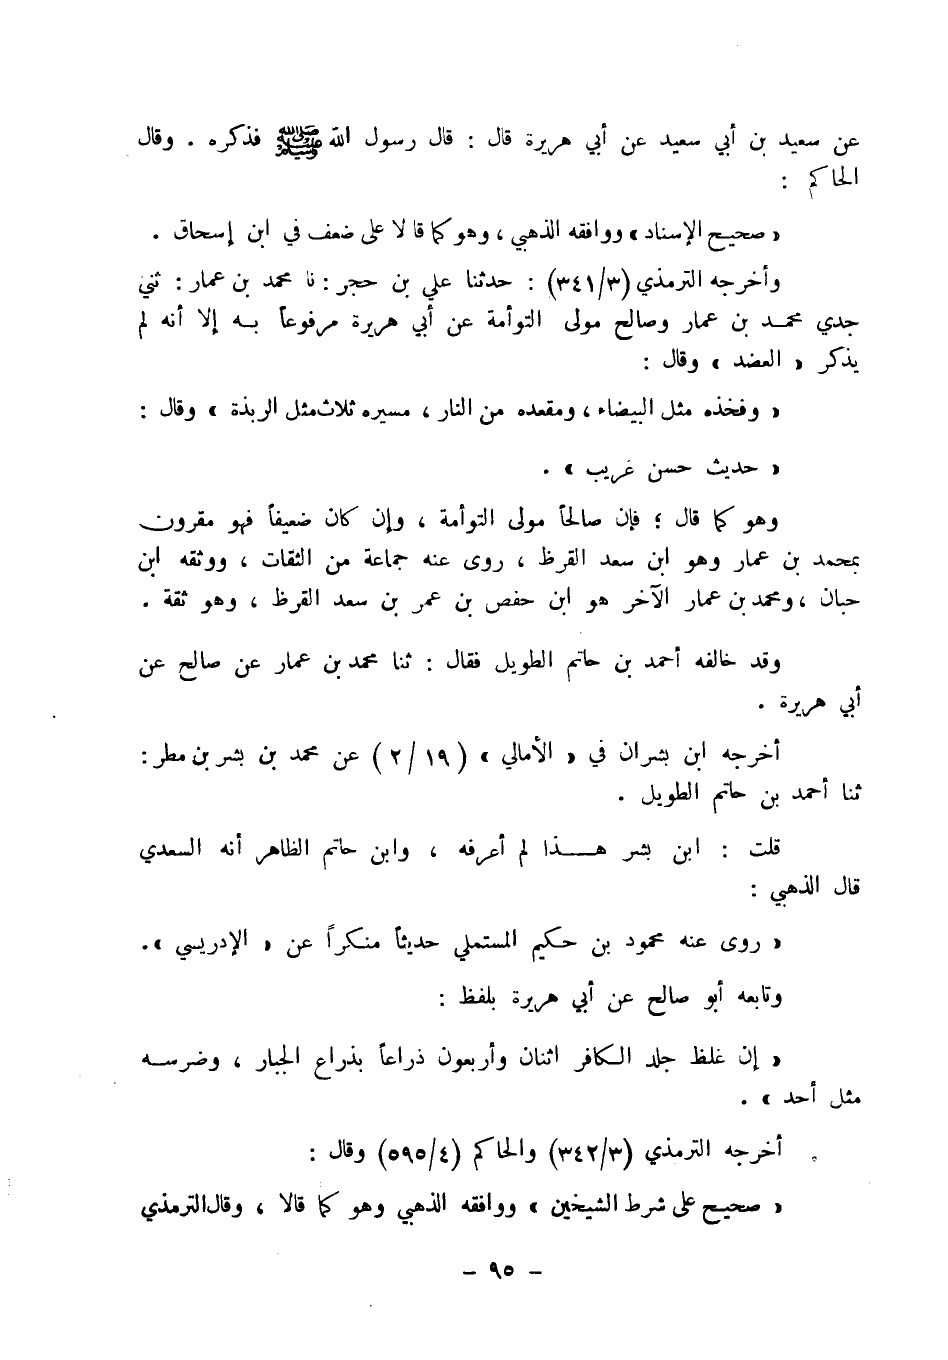 عن سعيد بن أبي سعيد عن أبي هريرة قال : قال رسول الله ﷺ فذكره . وقال
الحاكم :
« صحيح الإسناد » ووافقه الذهبي ، وهو كما قا لا على ضعف في ابن إسحاق .
وأخرجه الترمذي (٣٤١/٣) : حدثنا علي بن حجر : نا محمد بن عمار : ثني
جدي محمد بن عمار وصالح مولى التوأمة عن أبي هريرة مرفوعاً به إلا أنه لم
يذكر « العضد » وقال :
« وفخذه مثل البيضاء ، ومقعده من النار ، مسيره ثلاث مثل الربذة » وقال :
« حديث حسن غريب » .
وهو كما قال ؛ فإن صالحاً مولى التوأمة ، وإن كان ضعيفاً فهو مقرون
بمحمد بن عمار وهو ابن سعد القرظ ، روى عنه جماعة من الثقات ، ووثقه ابن
حبان ، ومحمد بن عمار الآخر هو ابن حفص بن عمر بن سعد القرظ ، وهو ثقة .
وقد خالفه أحمد بن حاتم الطويل فقال : ثنا محمد بن عمار عن صالح عن
أبي هريرة .
أخرجه ابن بشران في « الأمالي » (٢/١٩) عن محمد بن بشر بن مطر :
ثنا أحمد بن حاتم الطويل .
قلت : ابن بشر هذا لم أعرفه ، وابن حاتم الظاهر أنه السعدي
قال الذهبي :
« روى عنه محمود بن حكيم المستملي حديثاً منكراً عن « الإدريسي » .
وتابعه أبو صالح عن أبي هريرة بلفظ :
« إن غلظ جلد الكافر اثنان وأربعون ذراعاً بذراع الجبار ، وضرسه
مثل أحد » .
أخرجه الترمذي (٣٤٢/٣) والحاكم (٥٩٥/٤) وقال :
« صحيح على شرط الشيخين » ووافقه الذهبي وهو كما قالا ، وقال الترمذي
- ٩٥ -